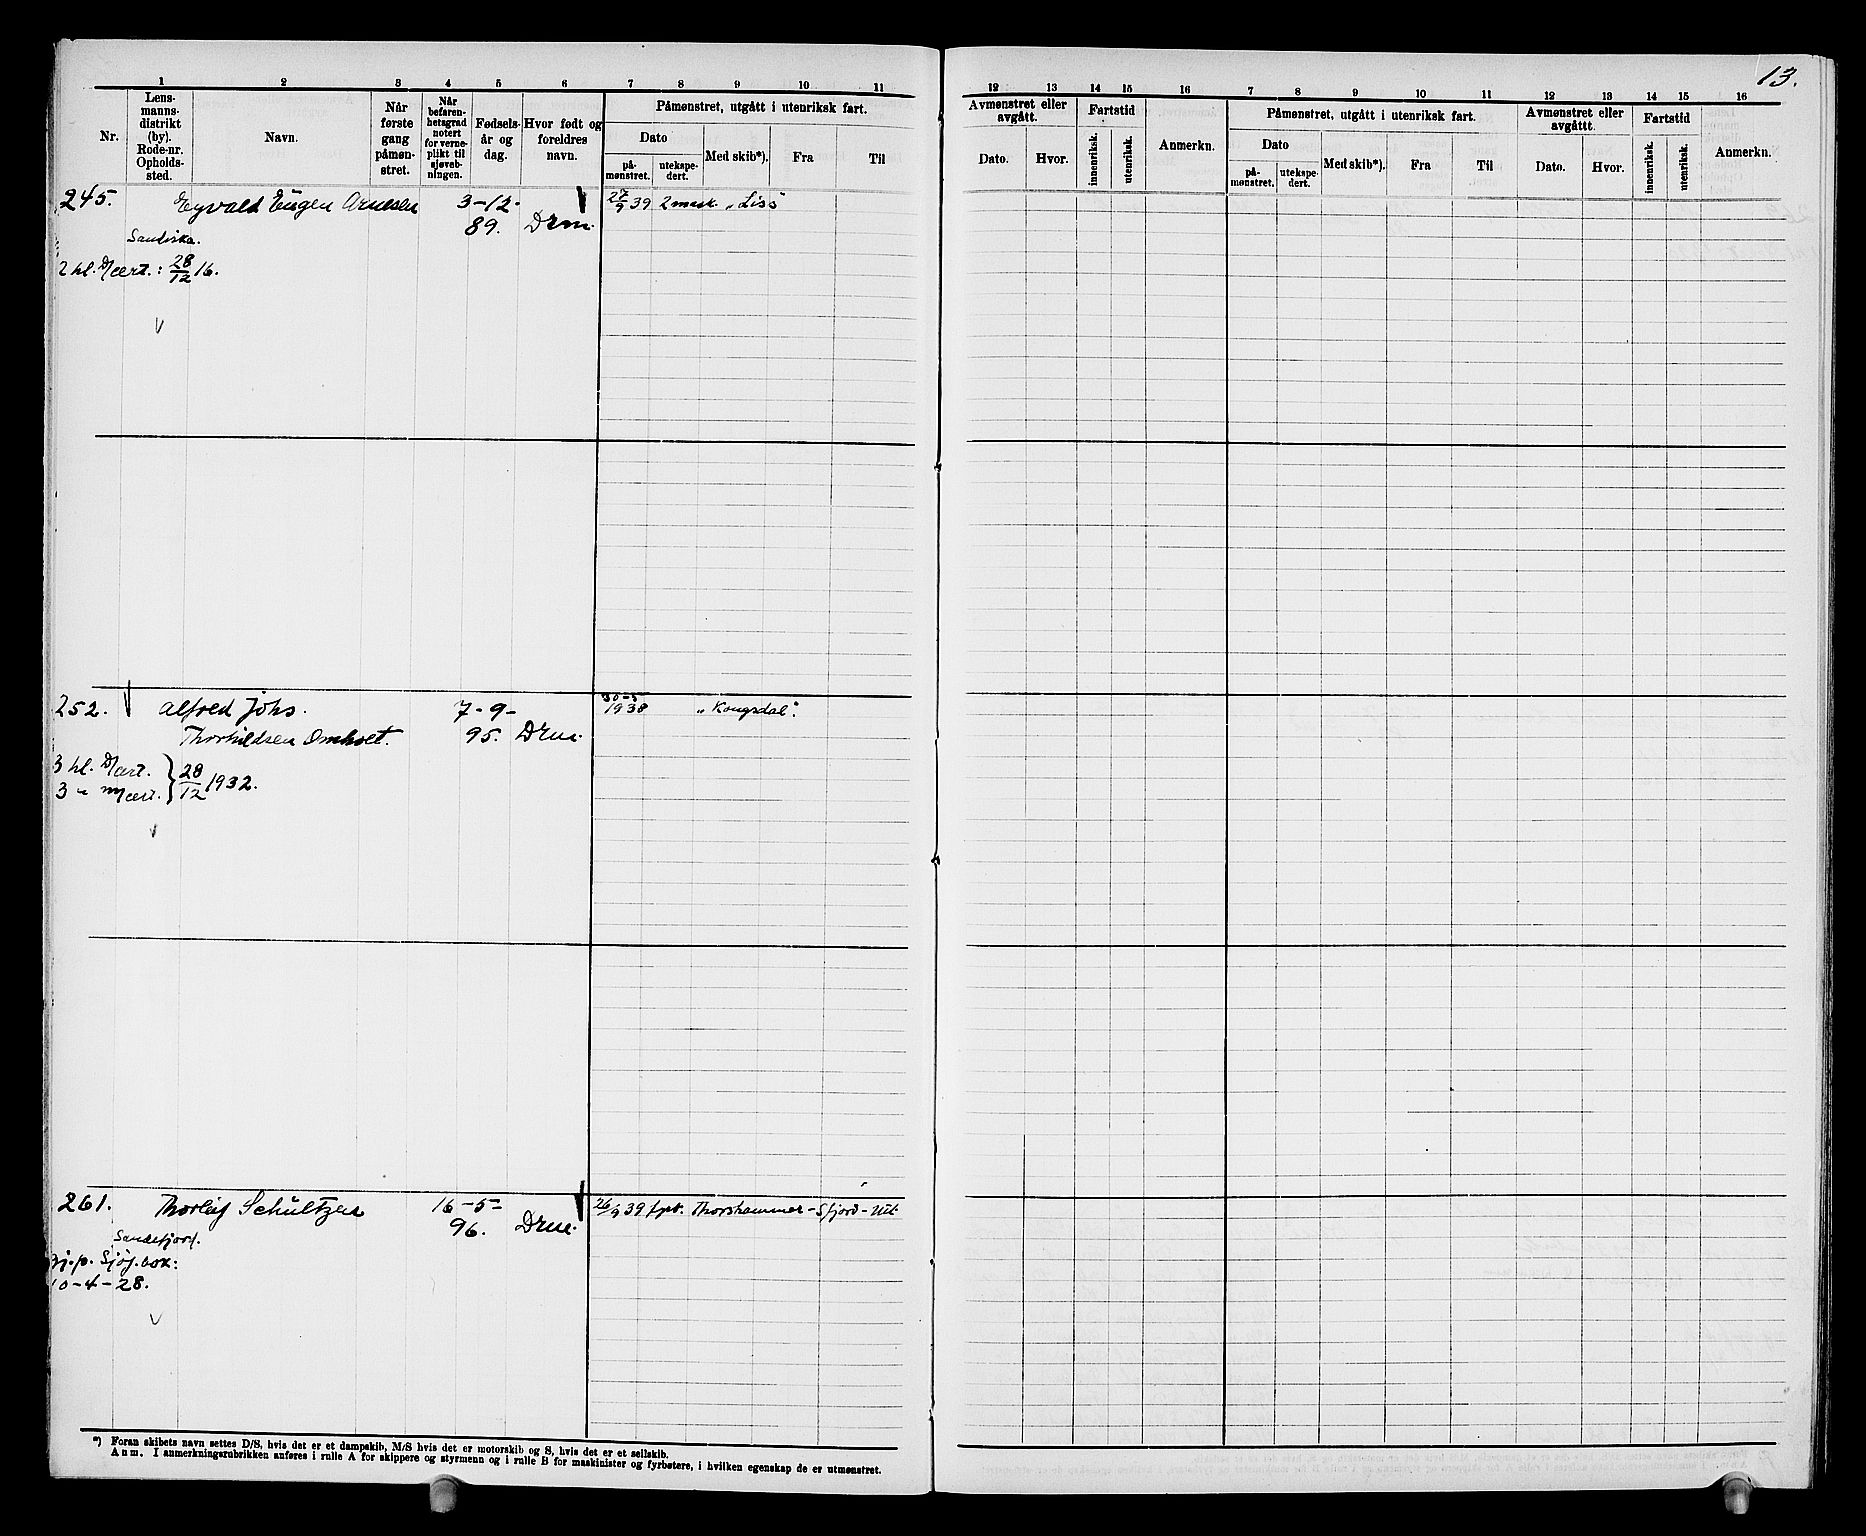 13.
1 2 3 4 5 6 7 8 9 10 11
12 13 14 15 16 7 8 9 10 11 12 13 14 15 16
Nr.
Lens-
manns-
distrikt
(by).
Rode-nr.
Opholds-
sted.
Navn.
Når
første
gang
påmøn-
stret.
Når
befaren-
hetsgrad
notert
for verne-
plikt til
sjøveb-
ningen.
Fødsels-
år og
dag.
Hvor født og
foreldres
navn.
Påmønstret, utgått i utenriksk fart.
Dato
på-
mønstret.
utekspe-
dert.
Med skib*).
Fra
Til
Avmønstret eller
avgått.
Dato.
Hvor.
Fartstid
innenriksk.
utenriksk.
Anmerkn.
Påmønstret, utgått i utenriksk fart.
Dato
på-
mønstret.
utekspe-
dert.
Med skib*).
Fra
Til
Avmønstret eller
avgåttt.
Dato.
Hvor.
Fartstid
innenriksk.
utenriksk.
Anmerkn.
245. Eyvald Eugen Arnesen 3-12- 27/9 39 2 mask. „Liss"
89. Drm.
2 kl. Dcert.: 28/12 16.
252. Alfred Johs. 7-9- 30-5
1938 „Kongsdal".
Thorkildsen Omholt. 95. Drm.
3 kl. Dcert.
3 " Mcert. } 28/12 1932.
261. Thorleif Schultzen 16-5- 26/9 39 fyrb. Thorshammer - Sfjord - Ut
96. Drm.
Sandefjord.
10-4-28.
*) Foran skibets navn settes D/S, hvis det er et dampskib, M/S hvis det er motorskib og S, hvis det er et seilskib.
Anm. I anmerkningsrubrikken anføres i rulle A for skippere og styrmenn og i rulle B for maskinister og fyrbøtere, i hvilken egenskap de er utmønstret.